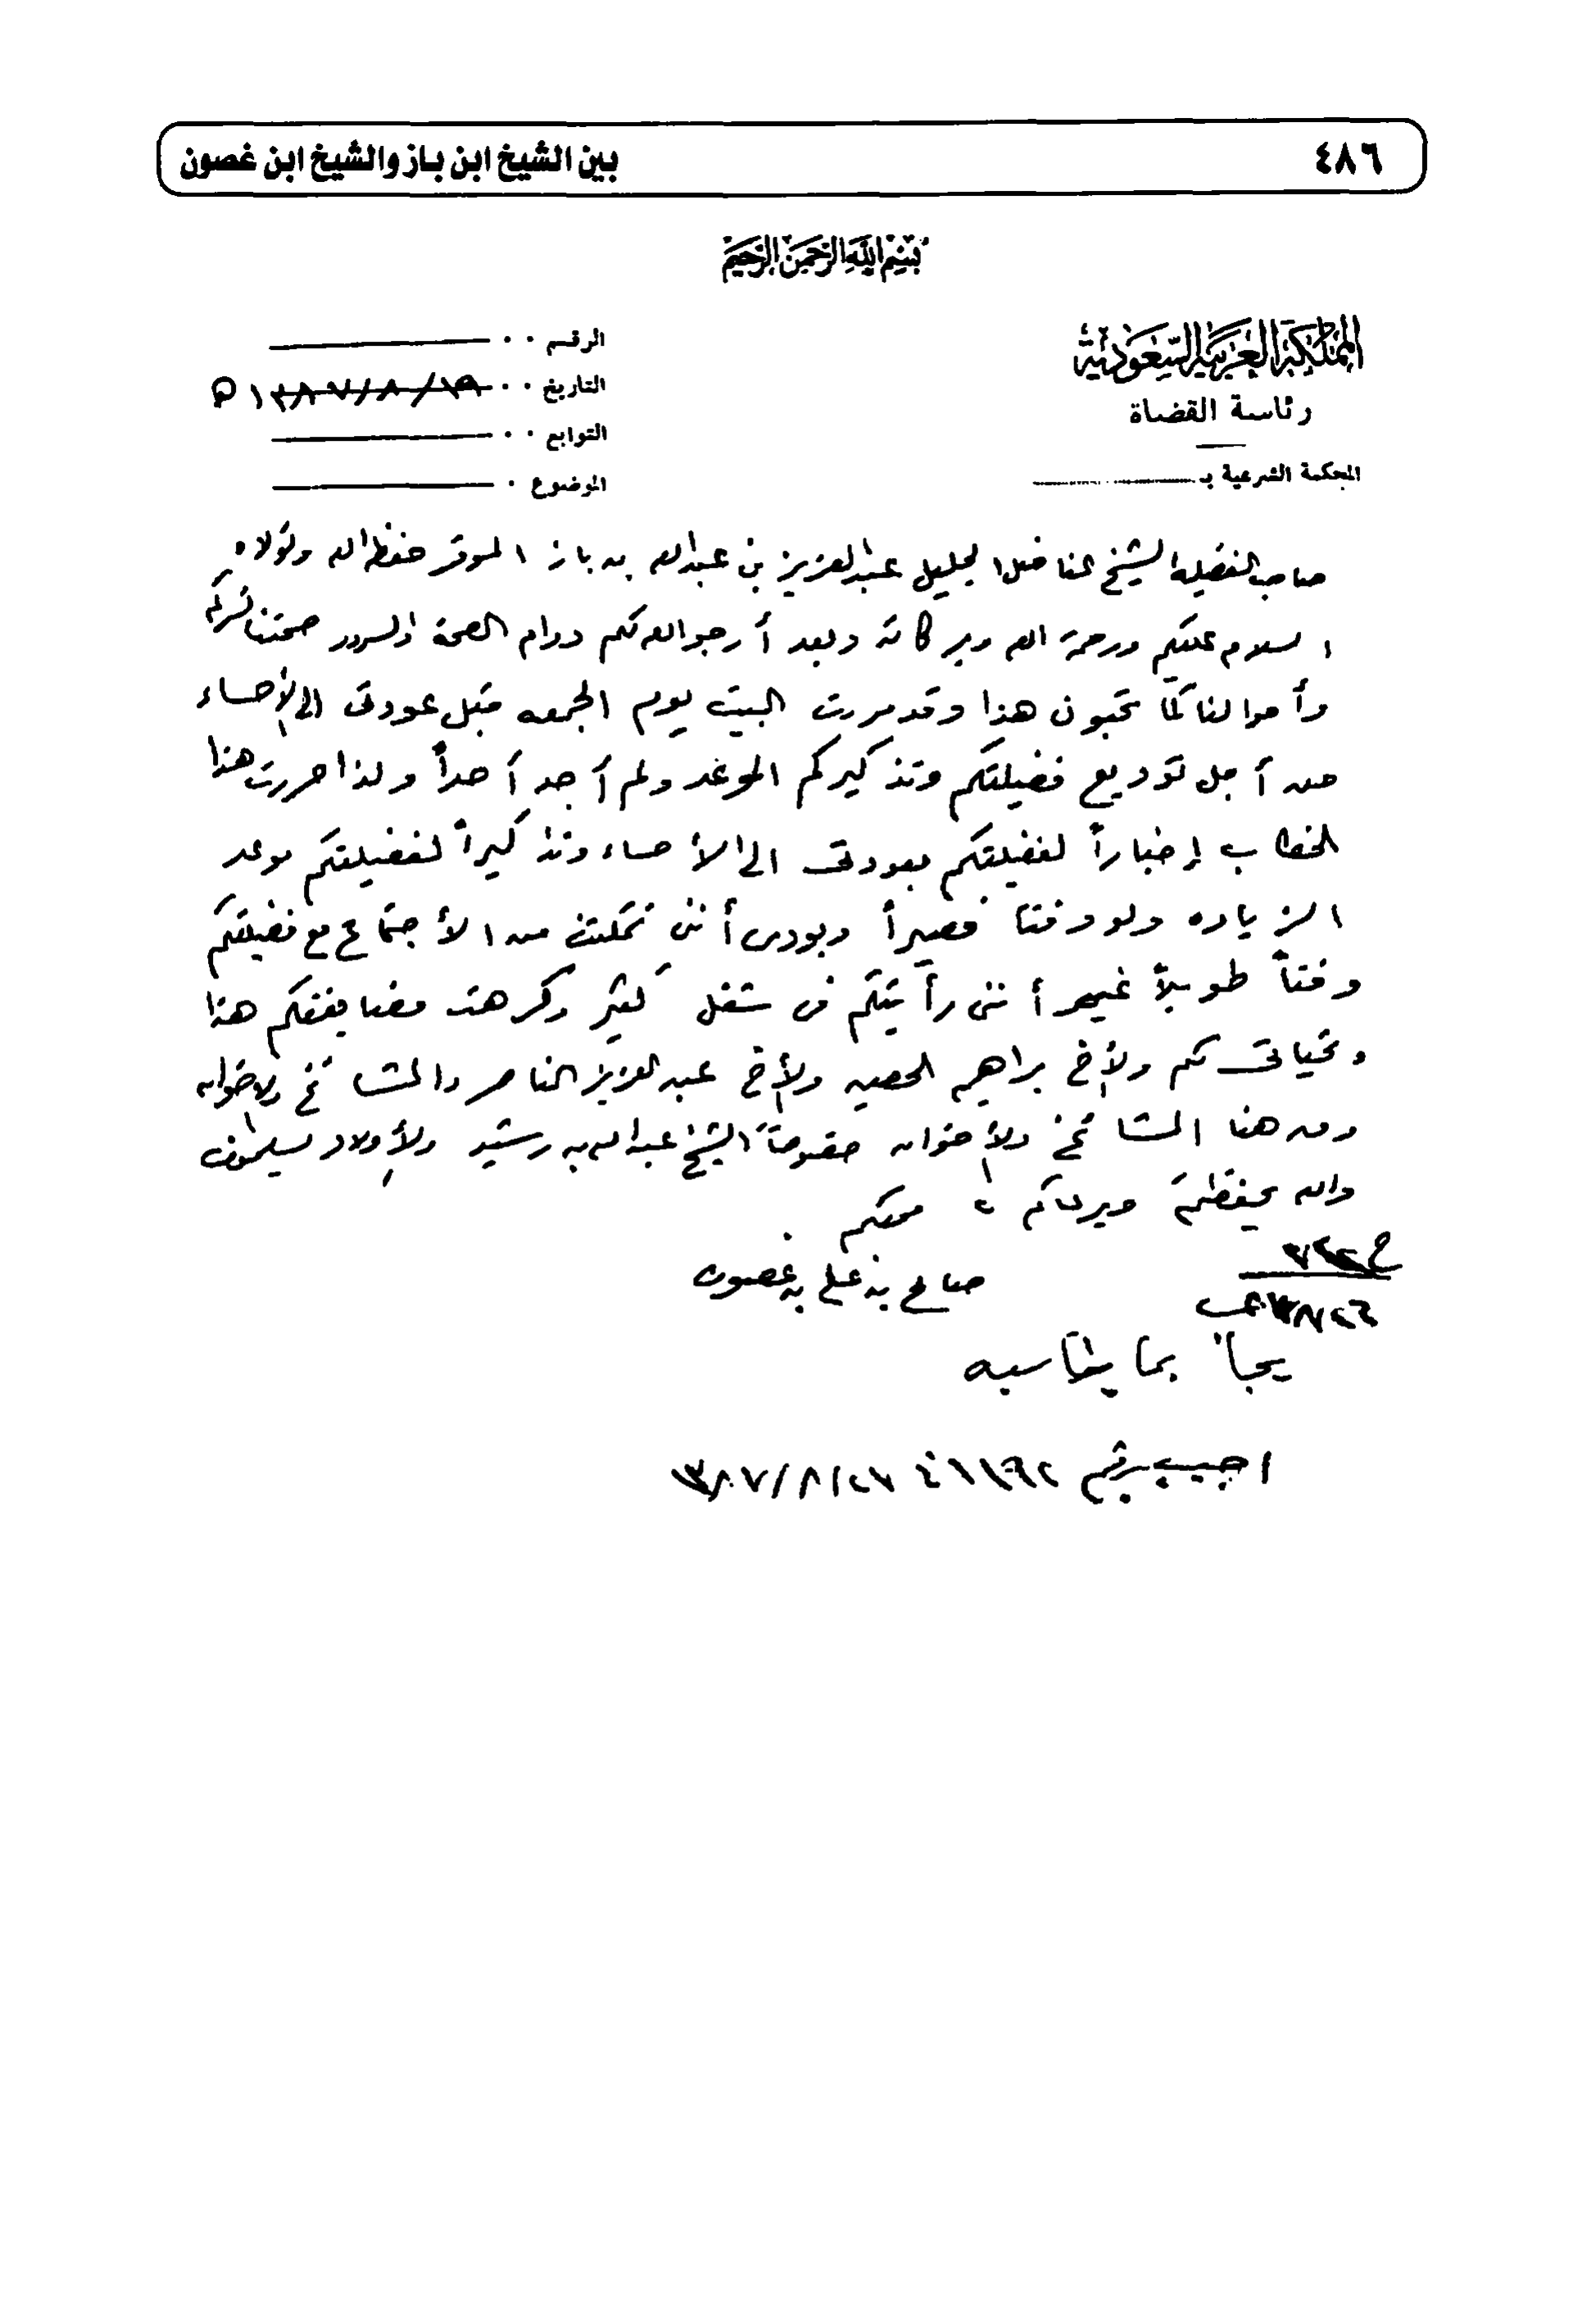 ٤٨٦
بين الشيخ ابن باز والشيخ ابن غصون
بسم الله الرحمن الرحيم
المملكة العربية السعودية
رئاسة القضاة
المحكمة الشرعية بـ
الرقم
التاريخ ١٩/٨/١٣٨٧ ه
التوابع
الموضوع
صاحب الفضيلة الشيخ الفاضل الجليل عبد العزيز بن عبد الله بن باز الموقر حفظه الله وتولاه
السلام عليكم ورحمة الله وبركاته وبعد أرجو الله لكم دوام الصحة والسرور صحتنا تسركم
وأحوالنا كما تحبون هذا وقد مررت البيت يوم الجمعه قبل عودتي الى الأحساء
من أجل توديع فضيلتكم وتذكيركم الموعد ولم أجد أحداً ولذا حررت هذا
الخطاب إخباراً لفضيلتكم بعودتي الى الأحساء وتذكيراً لفضيلتكم موعد
الزياره ولو وقتا قصيراً وبودي أنني تمكنت من الأجتماع مع فضيلتكم
وقتاً طويلاً غير أنني رأيتكم في شغل كثير وكرهت مضايقتكم هذا
وتحياتي لكم وللأخ براهيم الحصين وللأخ عبد العزيز الناصر والمشائخ والاخوان
ومن هنا المشائخ والأخوان خصوصاً الشيخ عبد الله بن رشيد والأولاد يسلمون
والله يحفظكم ويرعاكم محبكم
صالح بن علي بن غصون
يجاب بما يناسبه
اجيب برقم ٢٧/٨/١٣٨٧